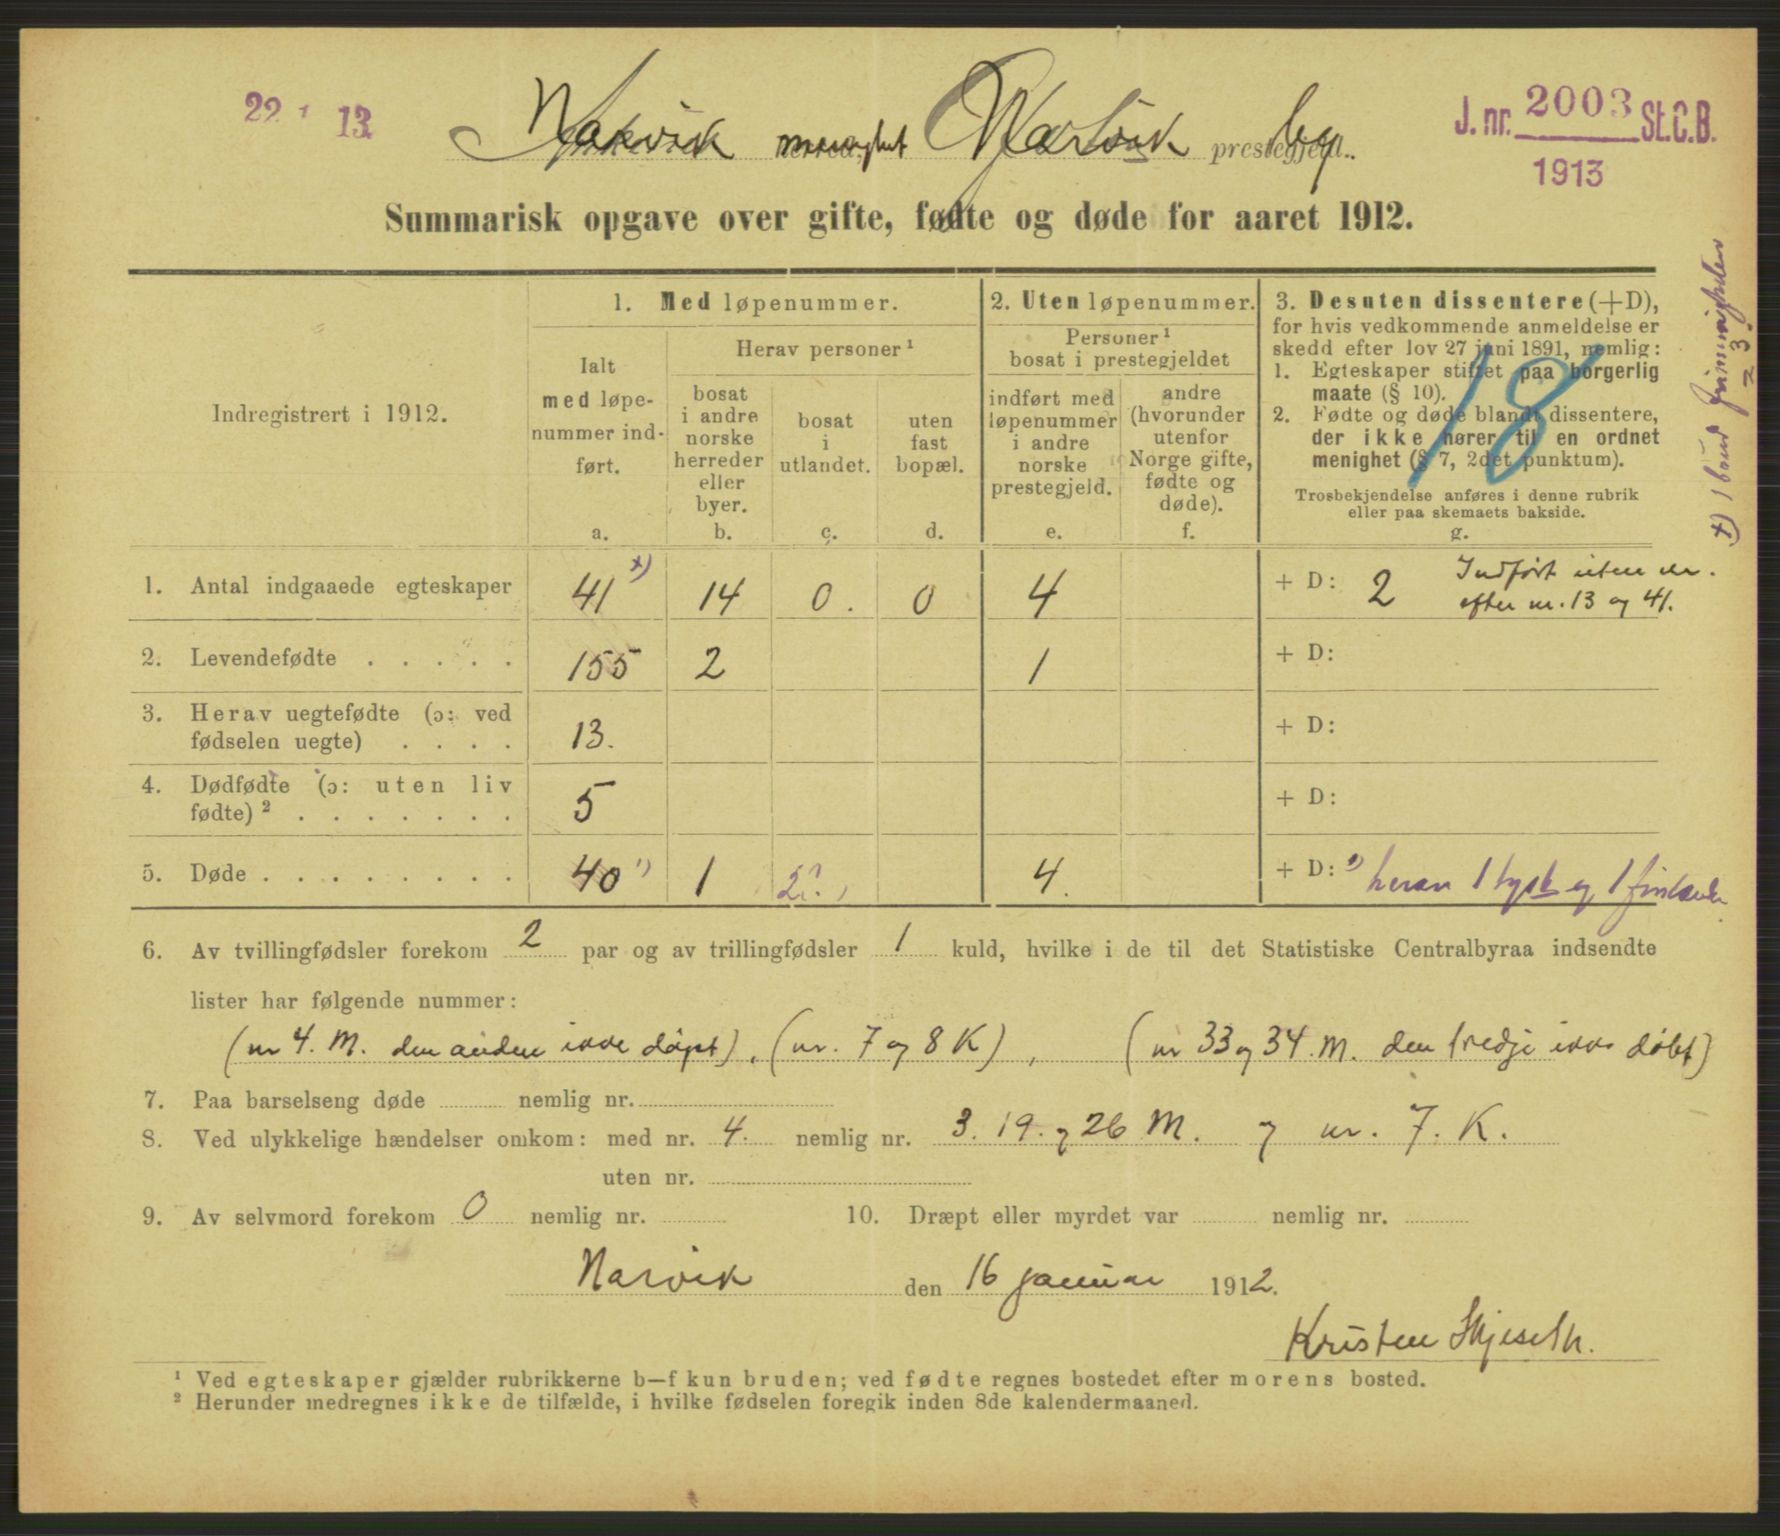 22 1 13
Narvik menighet Narvik by
prestegjeld.
J. nr. 2003 St.C.B.
1913
Summarisk opgave over gifte, fødte og døde for aaret 1912.
Indregistrert i 1912.
1. Med løpenummer.
Ialt
med løpe-
nummer ind-
ført.
a.
Herav personer ¹
bosat
i andre
norske
herreder
eller
byer.
b.
bosat
i
utlandet.
c.
uten
fast
bopæl.
d.
2. Uten løpenummer.
Personer ¹
bosat i prestegjeldet
indført med
løpenummer
i andre
norske
prestegjeld.
e.
andre
(hvorunder
utenfor
Norge gifte,
fødte og
døde).
f.
3. Desuten dissentere (+D),
for hvis vedkommende anmeldelse er
skedd efter lov 27 juni 1891, nemlig:
1. Egteskaper stiftet paa borgerlig
maate (§ 10).
2. Fødte og døde blandt dissentere,
der ikke hører til en ordnet
menighet (§ 7, 2det punktum).
Trosbekjendelse anføres i denne rubrik
eller paa skemaets bakside.
g.
18
x) 1 brud
23.
1. Antal indgaaede egteskaper 41 x) 14 0. 0 4 + D: 2 Indført uten nr.
efter nr. 13 og 41.
2. Levendefødte . . . . . 155 2 1 + D:
3. Herav uegtefødte (ɔ: ved
fødselen uegte) . . . . 13. + D:
4. Dødfødte (ɔ: uten liv
fødte) ² . . . . . . . 5 + D:
5. Døde . . . . . . . . 40 ¹) 1 2?. 4. + D: ¹) herav 1 tysk og 1 finlænder
6. Av tvillingfødsler forekom 2 par og av trillingfødsler 1 kuld, hvilke i de til det Statistiske Centralbyraa indsendte
lister har følgende nummer:
(nr 4. M. den anden ikke døpt), (nr. 7 og 8 K), (nr 33 og 34. M. den tredje ikke døbt)
7. Paa barselseng døde nemlig nr.
8. Ved ulykkelige hændelser omkom: med nr. 4. nemlig nr. 3. 19. og 26 M. og nr. 7. K.
uten nr.
9. Av selvmord forekom 0 nemlig nr. 10. Dræpt eller myrdet var nemlig nr.
Narvik den 16 januar 1912.
Kristen Skjeseth.
¹ Ved egteskaper gjælder rubrikkerne b—f kun bruden; ved fødte regnes bostedet efter morens bosted.
² Herunder medregnes ikke de tilfælde, i hvilke fødselen foregik inden 8de kalendermaaned.